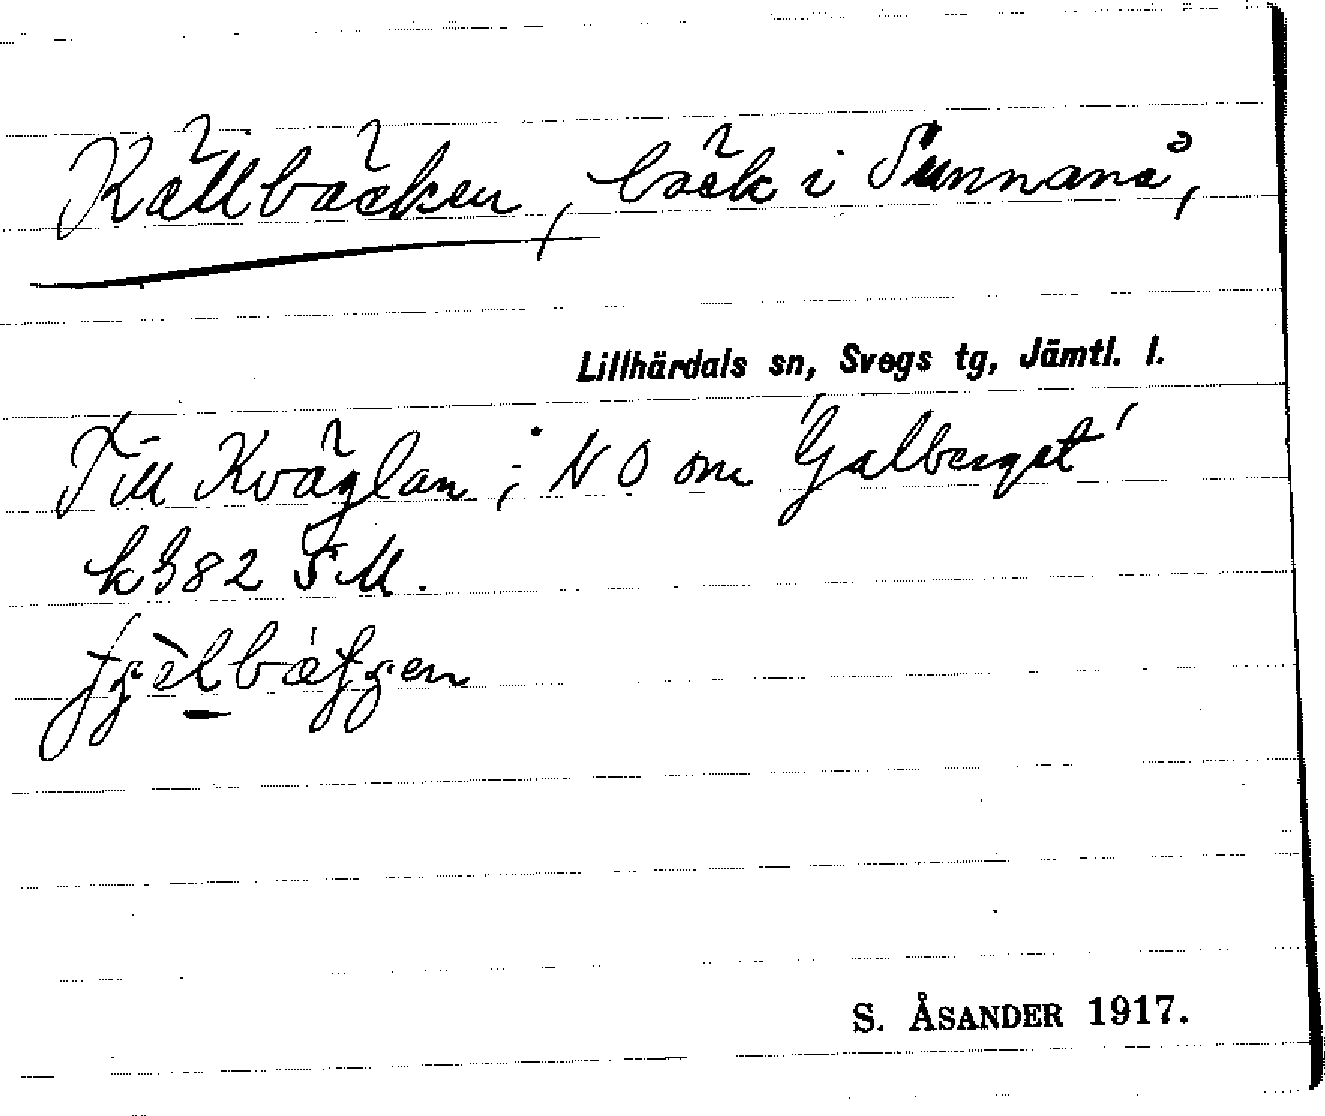 Källbäcken, bäck i Sunnanå,
Lillhärdals sn, Svegs tg, Jämtl. l.
Till Kväglan; NO om 'Galberget'
k382 SM.
S. ÅSANDER 1917.